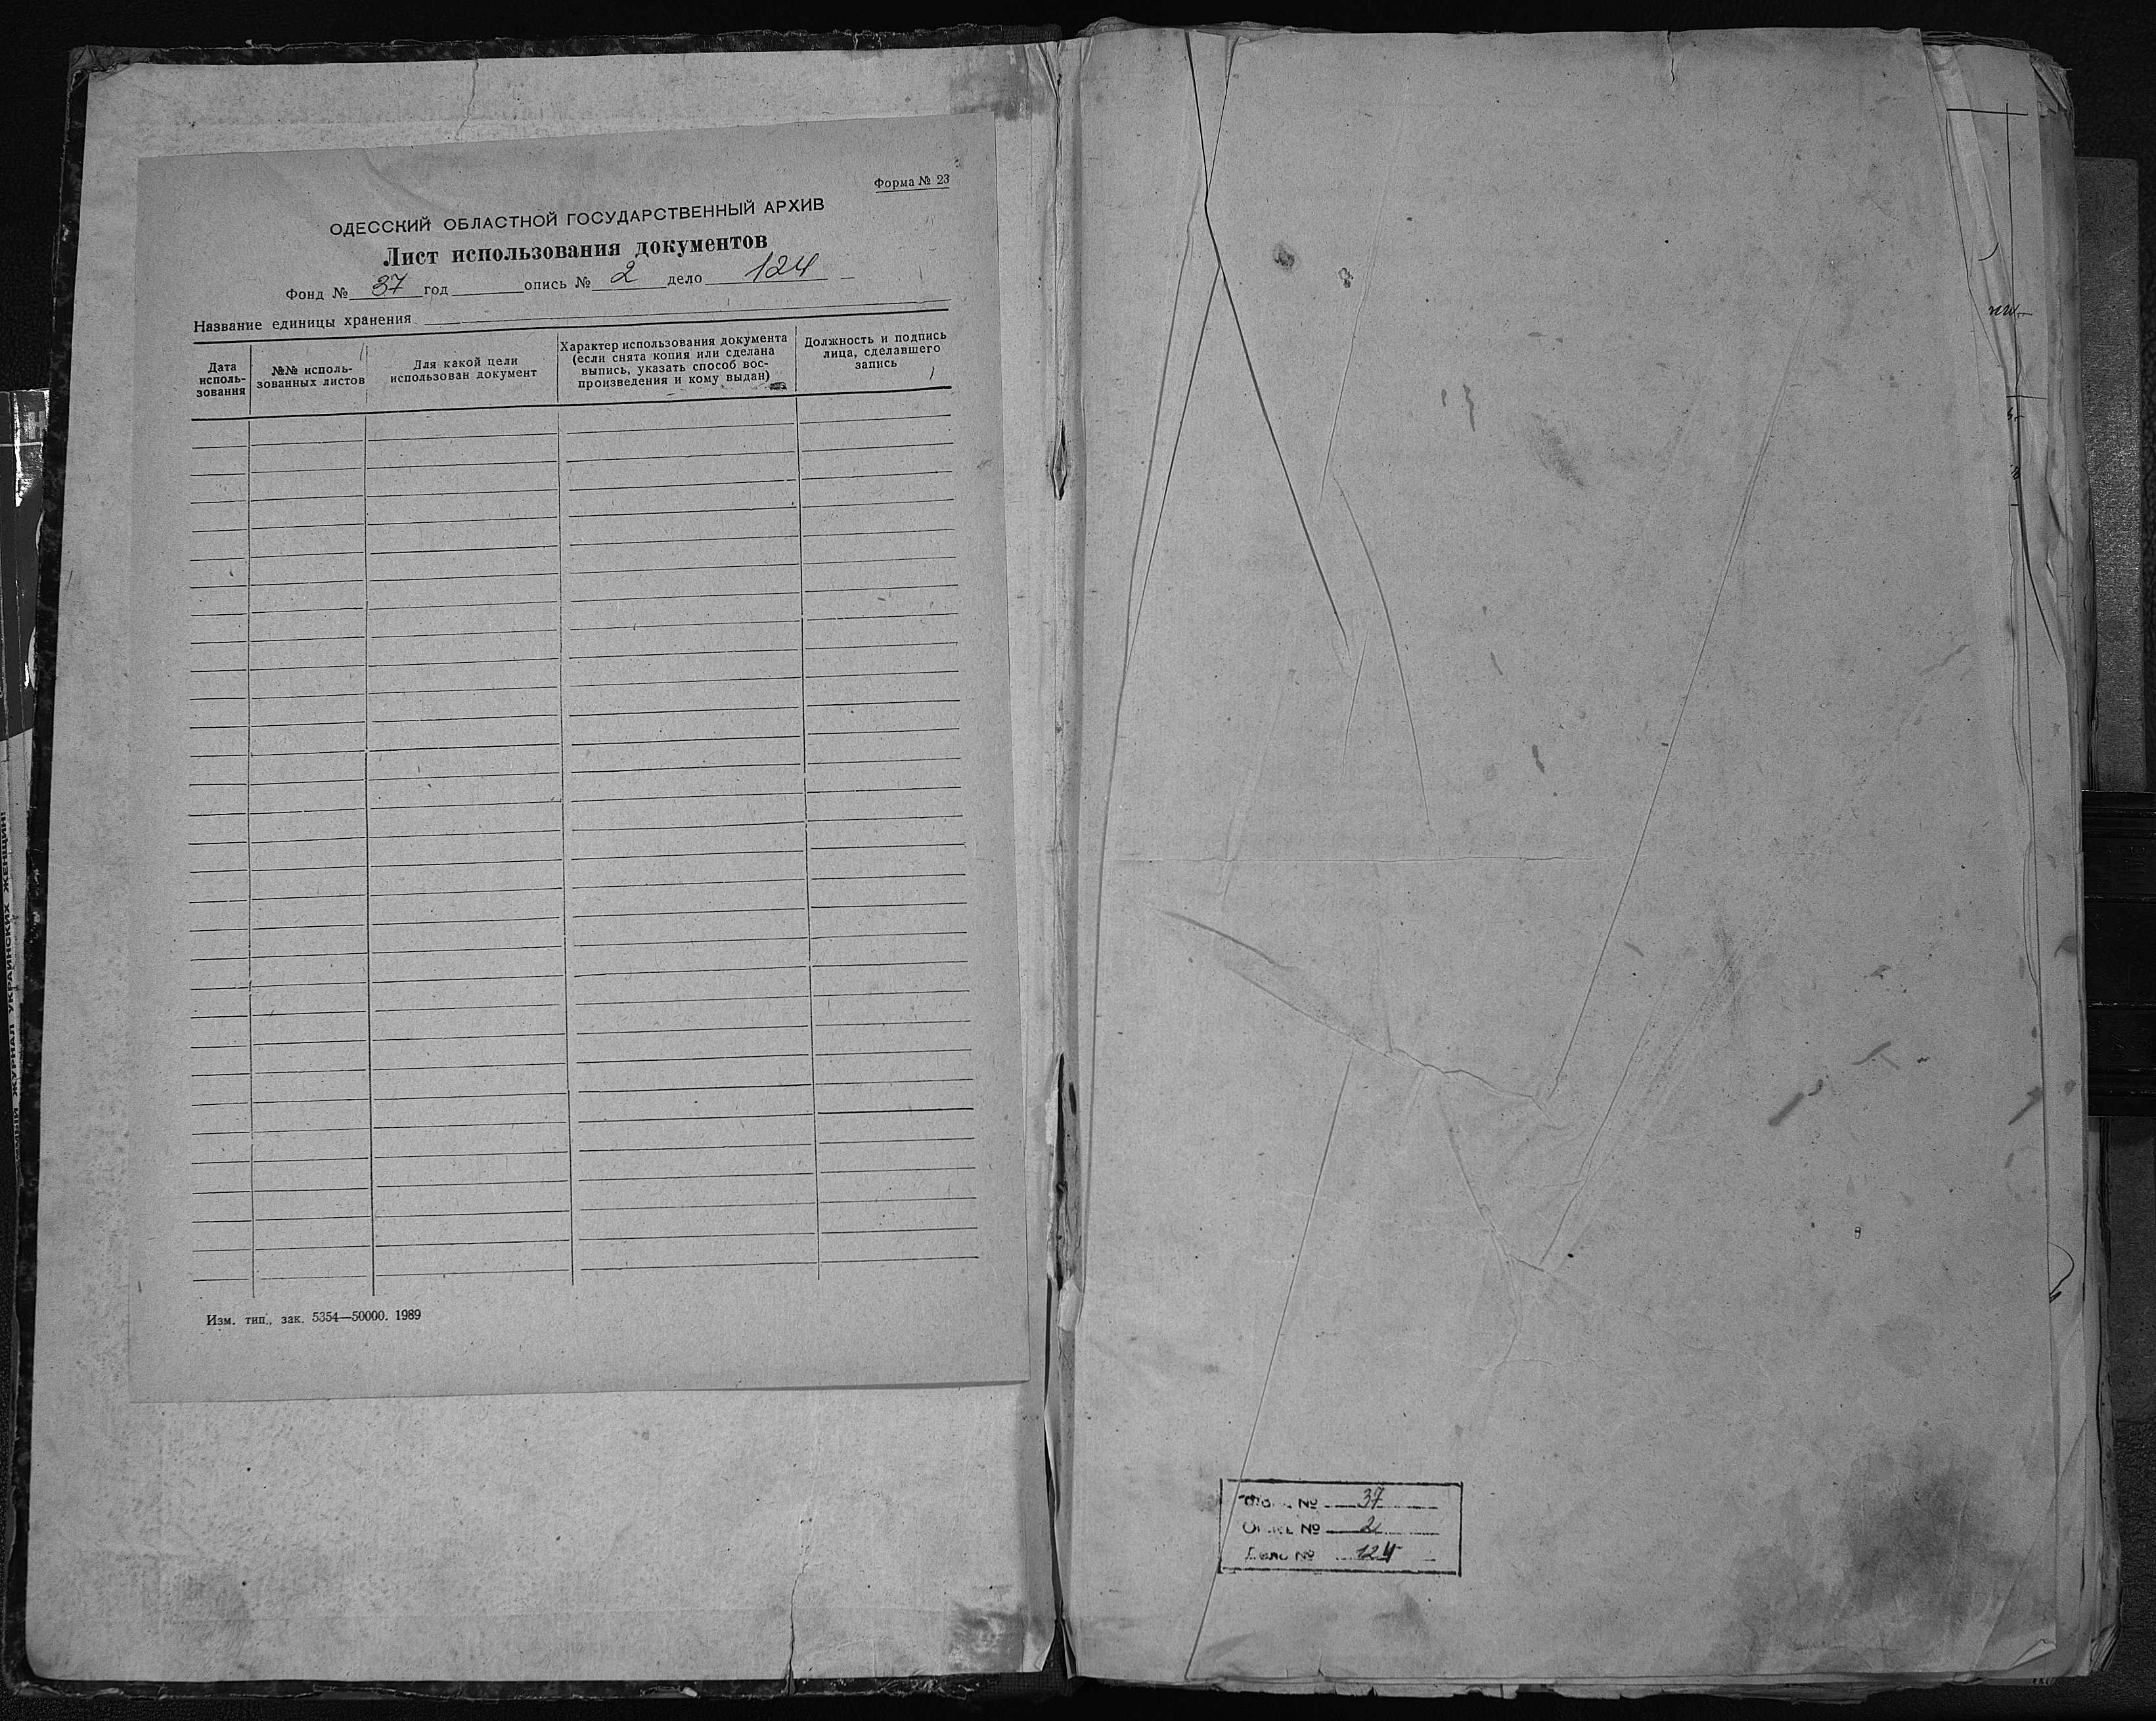 Форма № 23
ОДЕССКИЙ ОБЛАСТНОЙ ГОСУДАРСТВЕННЫЙ АРХИВ
Лист использования документов
Фонд № 37 год опись № 2 дело 124
Название единицы хранения
Дата исполь-
зования
№№ исполь-
зованных листов
Для какой цели
использован документ
Характер использования документа
(если снята копия или сделана
выпись, указать способ вос-
произведения и кому выдан)
Должность и подпись
лица, сделавшего
запись
Изм. тип., зак. 5354—50000. 1989
№ 37
№ 2
№ 124
ЖУРНАЛ УКРАИНСКИХ ЖЕНЩИН